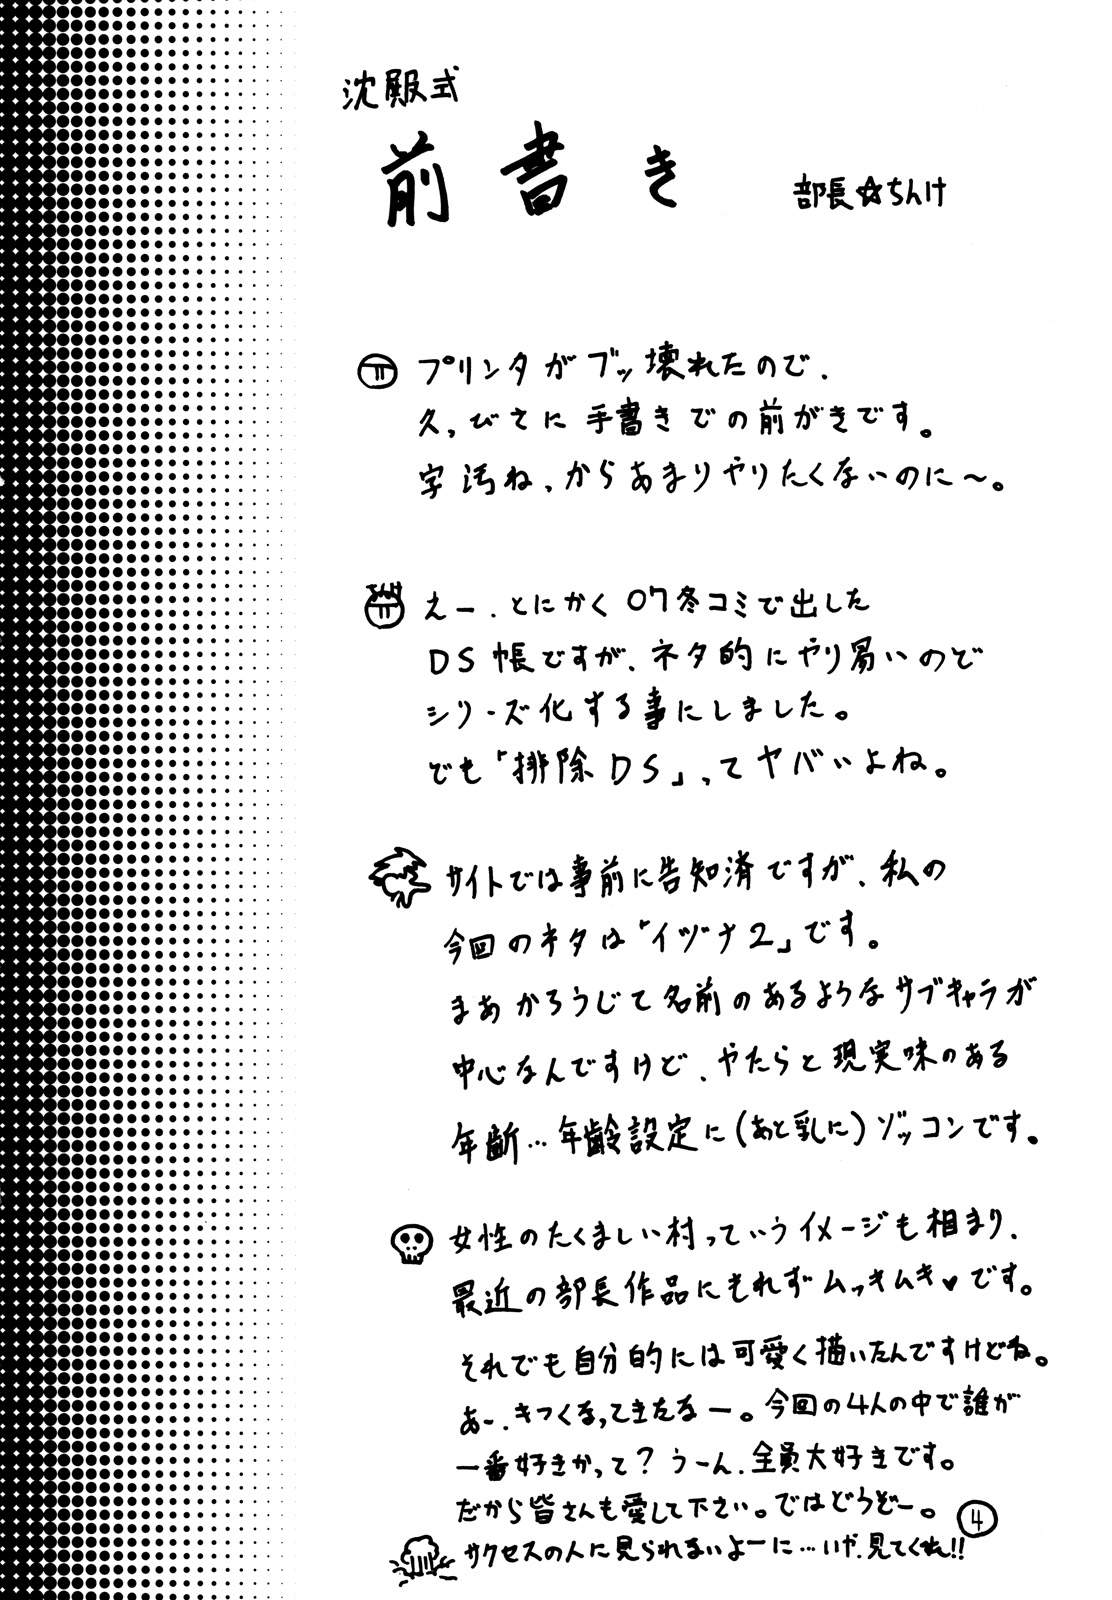 沈殿式
前書き
部長☆ちんけ
プリンタがブッ壊れたので、
久っびさに手書きでの前がきです。
字汚ね、からあまりやりたくないのに～。
えー、とにかく07冬コミで出した
DS帳ですが、ネタ的にやり易いので
シリーズ化する事にしました。
でも「排除DS」ってヤバいよね。
サイトでは事前に告知済ですが、私の
今回のネタは「イヅナ2」です。
まあかろうじて名前のあるようなサブキャラが
中心なんですけど、やたらと現実味のある
年齢…年齢設定に(あと乳に)ゾッコンです。
女性のたくましい村っていうイメージも相まり、
最近の部長作品にもれずムっきムき♥です。
それでも自分的には可愛く描いたんですけどね。
あ～、きつくなってきたなー。今回の4人の中で誰が
一番好きかって？うーん、全員大好きです。
だから皆さんも愛して下さい。ではどうぞー。
サクセスの人に見られないよーに…いや、見てくれ!!
4